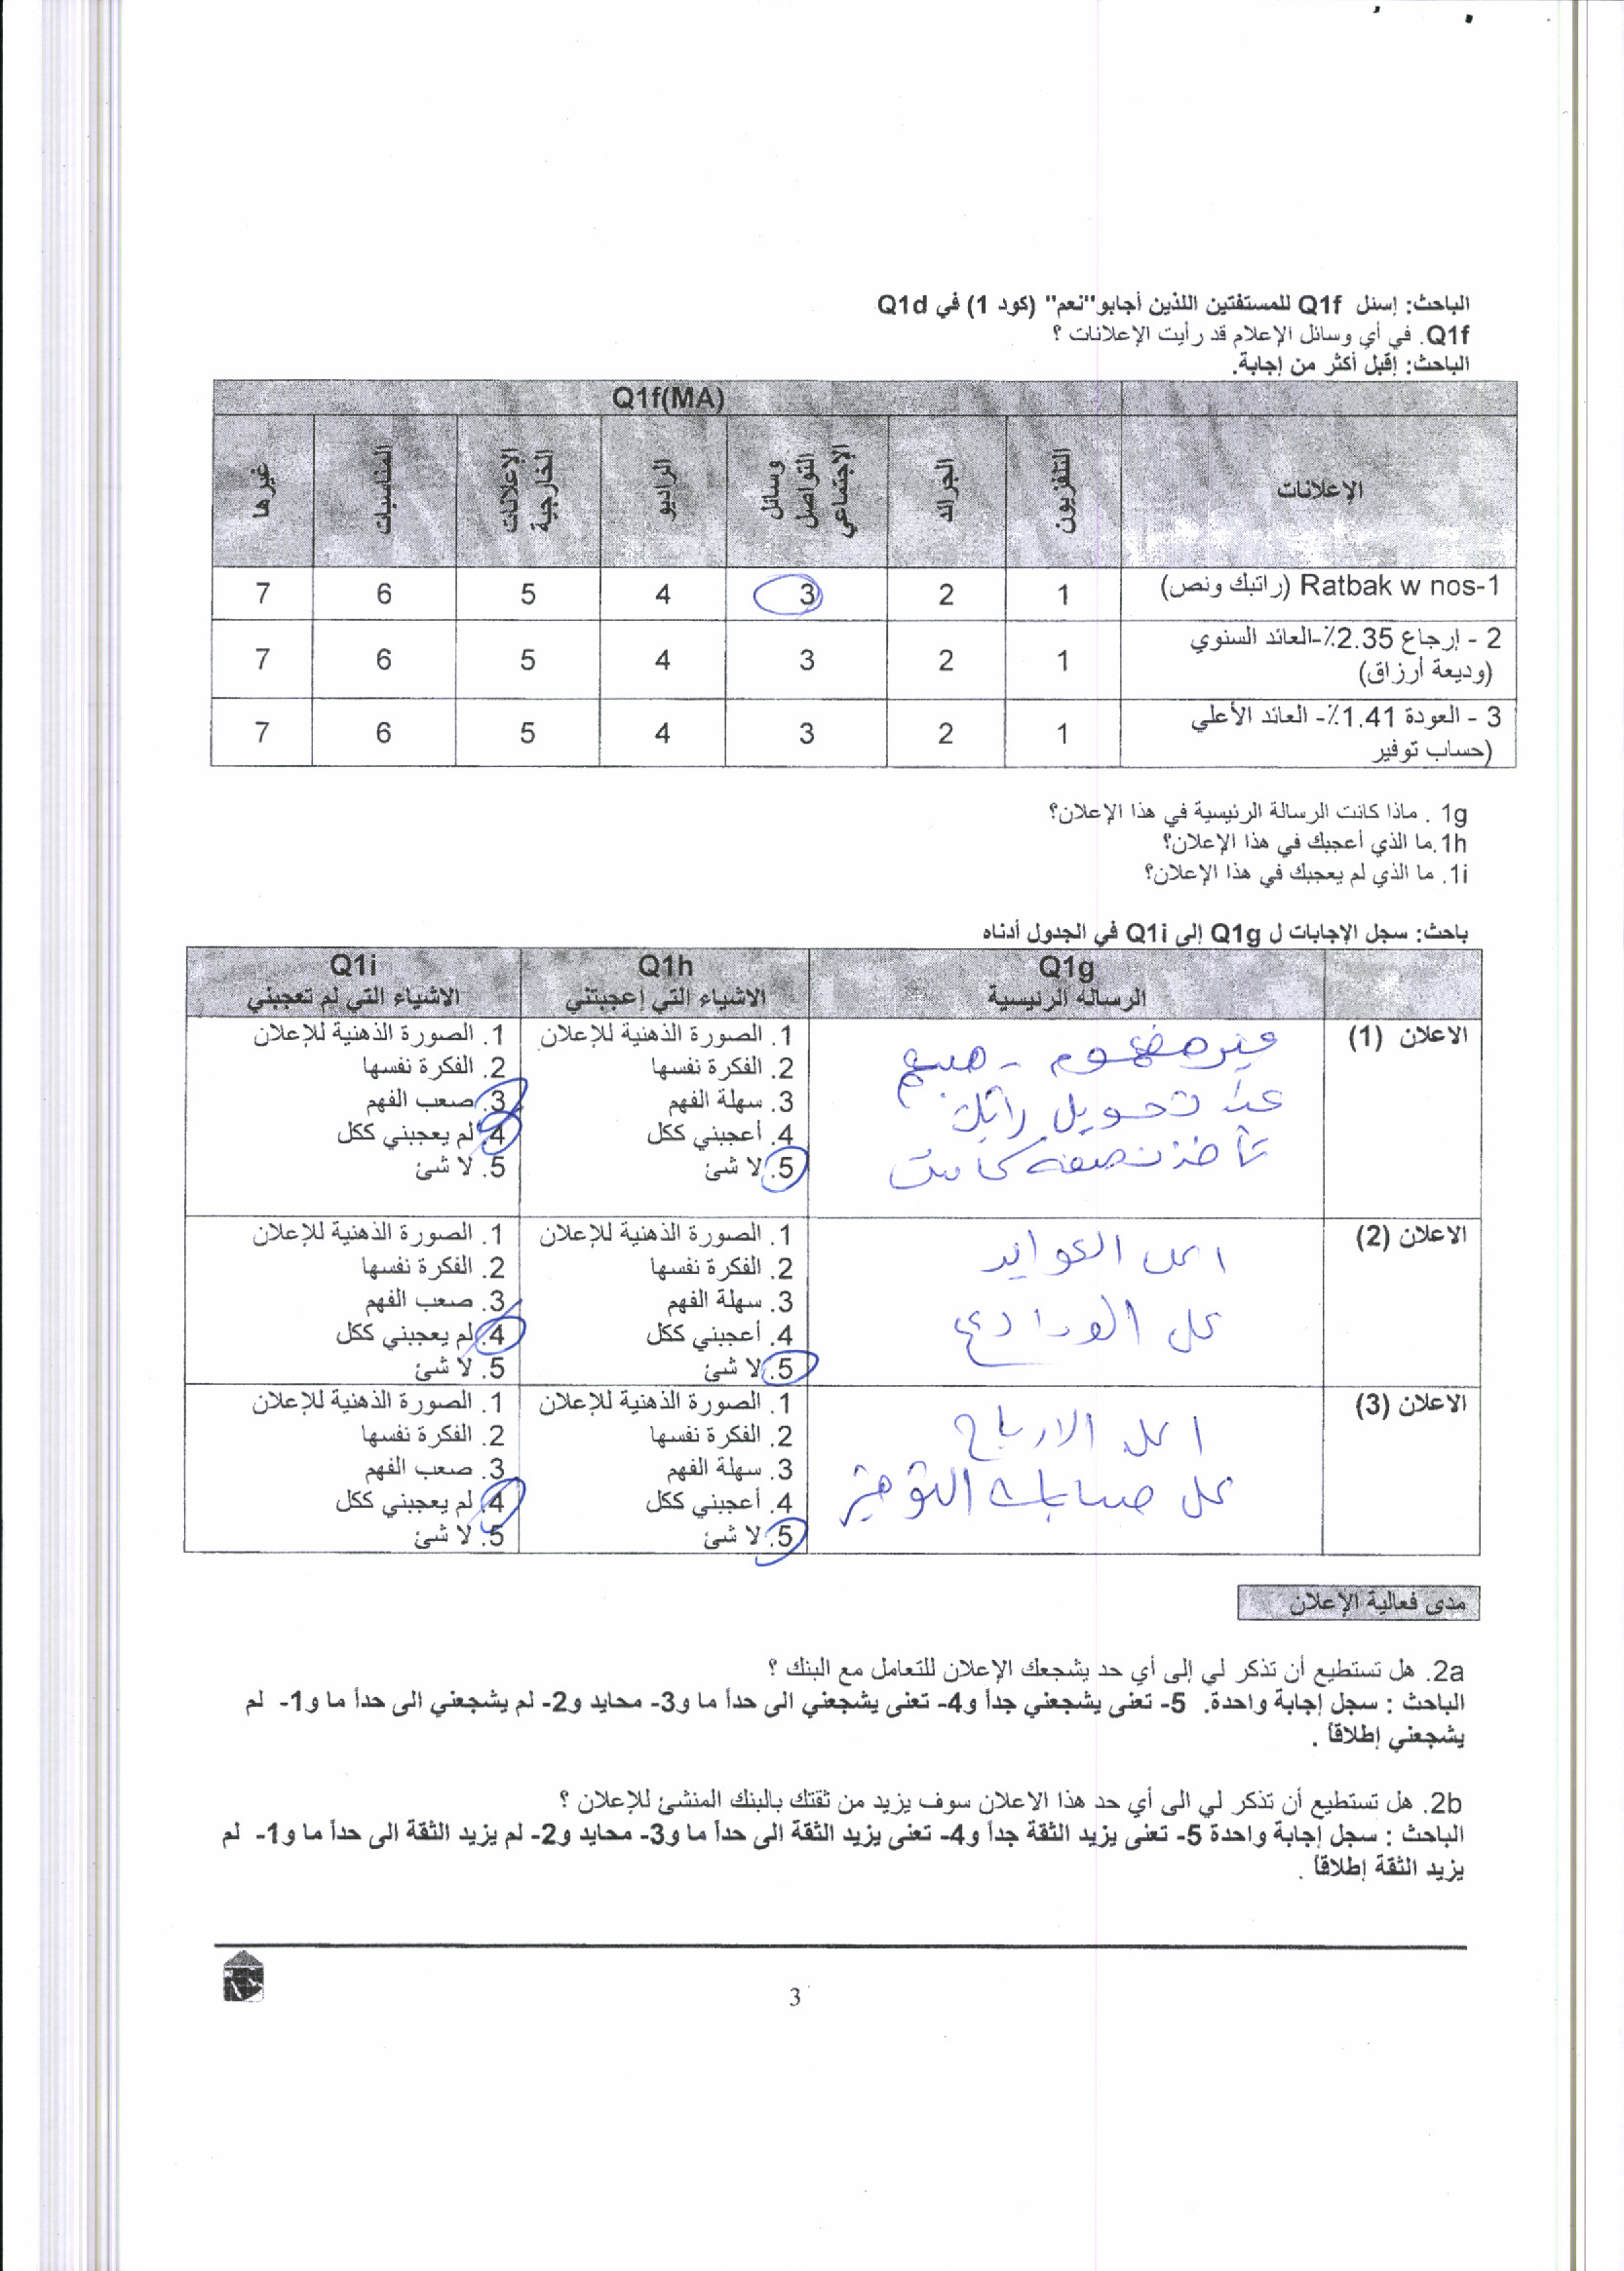 الباحث: إسئل Q1f للمستفتين اللذين أجابو"نعم" (كود 1) في Q1d
Q1f. في أي وسائل الإعلام قد رأيت الإعلانات ؟
الباحث: إقبل أكثر من إجابة.
Q1f(MA)
الإعلانات التلفزيون الجرائد وسائل التواصل الإجتماعي الراديو الإعلانات الخارجية المناسبات غيرها
Ratbak w nos-1 (راتبك ونص) 1 2 3 4 5 6 7
2 - إرجاع 2.35٪-العائد السنوي (وديعة أرزاق) 1 2 3 4 5 6 7
3 - العودة 1.41٪- العائد الأعلي (حساب توفير 1 2 3 4 5 6 7
1g . ماذا كانت الرسالة الرئيسية في هذا الإعلان؟
1h.ما الذي أعجبك في هذا الإعلان؟
1i. ما الذي لم يعجبك في هذا الإعلان؟
باحث: سجل الإجابات ل Q1g إلى Q1i في الجدول أدناه
Q1g Q1h Q1i
الرسالة الرئيسية الاشياء التي إعجبتني الاشياء التي لم تعجبني
الاعلان (1)
غير مفهوم - مبهم
عند تحويل راتبك
تأخذ نصفه كاش
1. الصورة الذهنية للإعلان
2. الفكرة نفسها
3. سهلة الفهم
4. أعجبني ككل
5. لا شئ
1. الصورة الذهنية للإعلان
2. الفكرة نفسها
3. صعب الفهم
4. لم يعجبني ككل
5. لا شئ
الاعلان (2)
العوايد
1. الصورة الذهنية للإعلان
2. الفكرة نفسها
3. سهلة الفهم
4. أعجبني ككل
5. لا شئ
1. الصورة الذهنية للإعلان
2. الفكرة نفسها
3. صعب الفهم
4. لم يعجبني ككل
5. لا شئ
الاعلان (3)
الارباح
التوفير
1. الصورة الذهنية للإعلان
2. الفكرة نفسها
3. سهلة الفهم
4. أعجبني ككل
5. لا شئ
1. الصورة الذهنية للإعلان
2. الفكرة نفسها
3. صعب الفهم
4. لم يعجبني ككل
5. لا شئ
مدى فعالية الإعلان
2a. هل تستطيع أن تذكر لي إلى أي حد يشجعك الإعلان للتعامل مع البنك ؟
الباحث : سجل إجابة واحدة. 5- تعنى يشجعني جداً و4- تعنى يشجعني الى حداً ما و3- محايد و2- لم يشجعني الى حداً ما و1- لم
يشجعني إطلاقاً .
2b. هل تستطيع أن تذكر لي الى أي حد هذا الاعلان سوف يزيد من ثقتك بالبنك المنشئ للإعلان ؟
الباحث : سجل إجابة واحدة 5- تعنى يزيد الثقة جداً و4- تعنى يزيد الثقة الى حداً ما و3- محايد و2- لم يزيد الثقة الى حداً ما و1- لم
يزيد الثقة إطلاقاً .
3